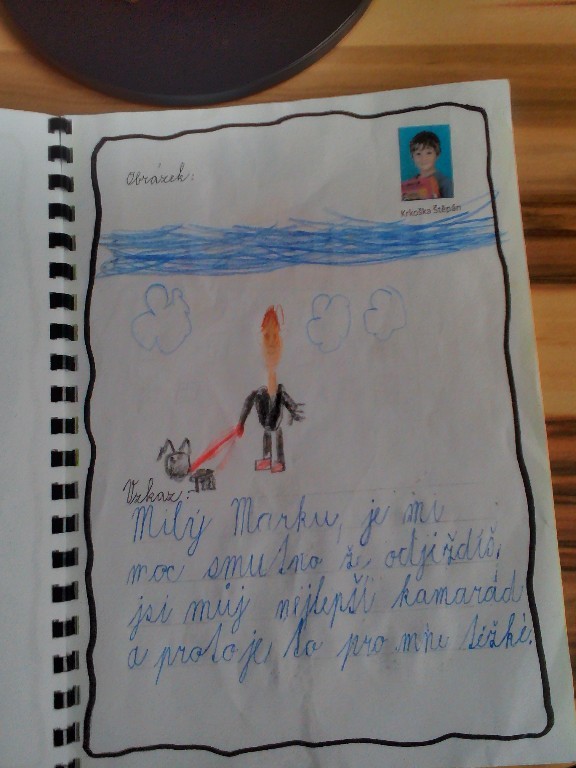 Obrázek:
Krkoška Štěpán
Vzkaz:
Milý Marku, je mi
moc smutno ž odjíždíš,
jsi můj nejlepší kamarád
a proto je to pro mne těžké.